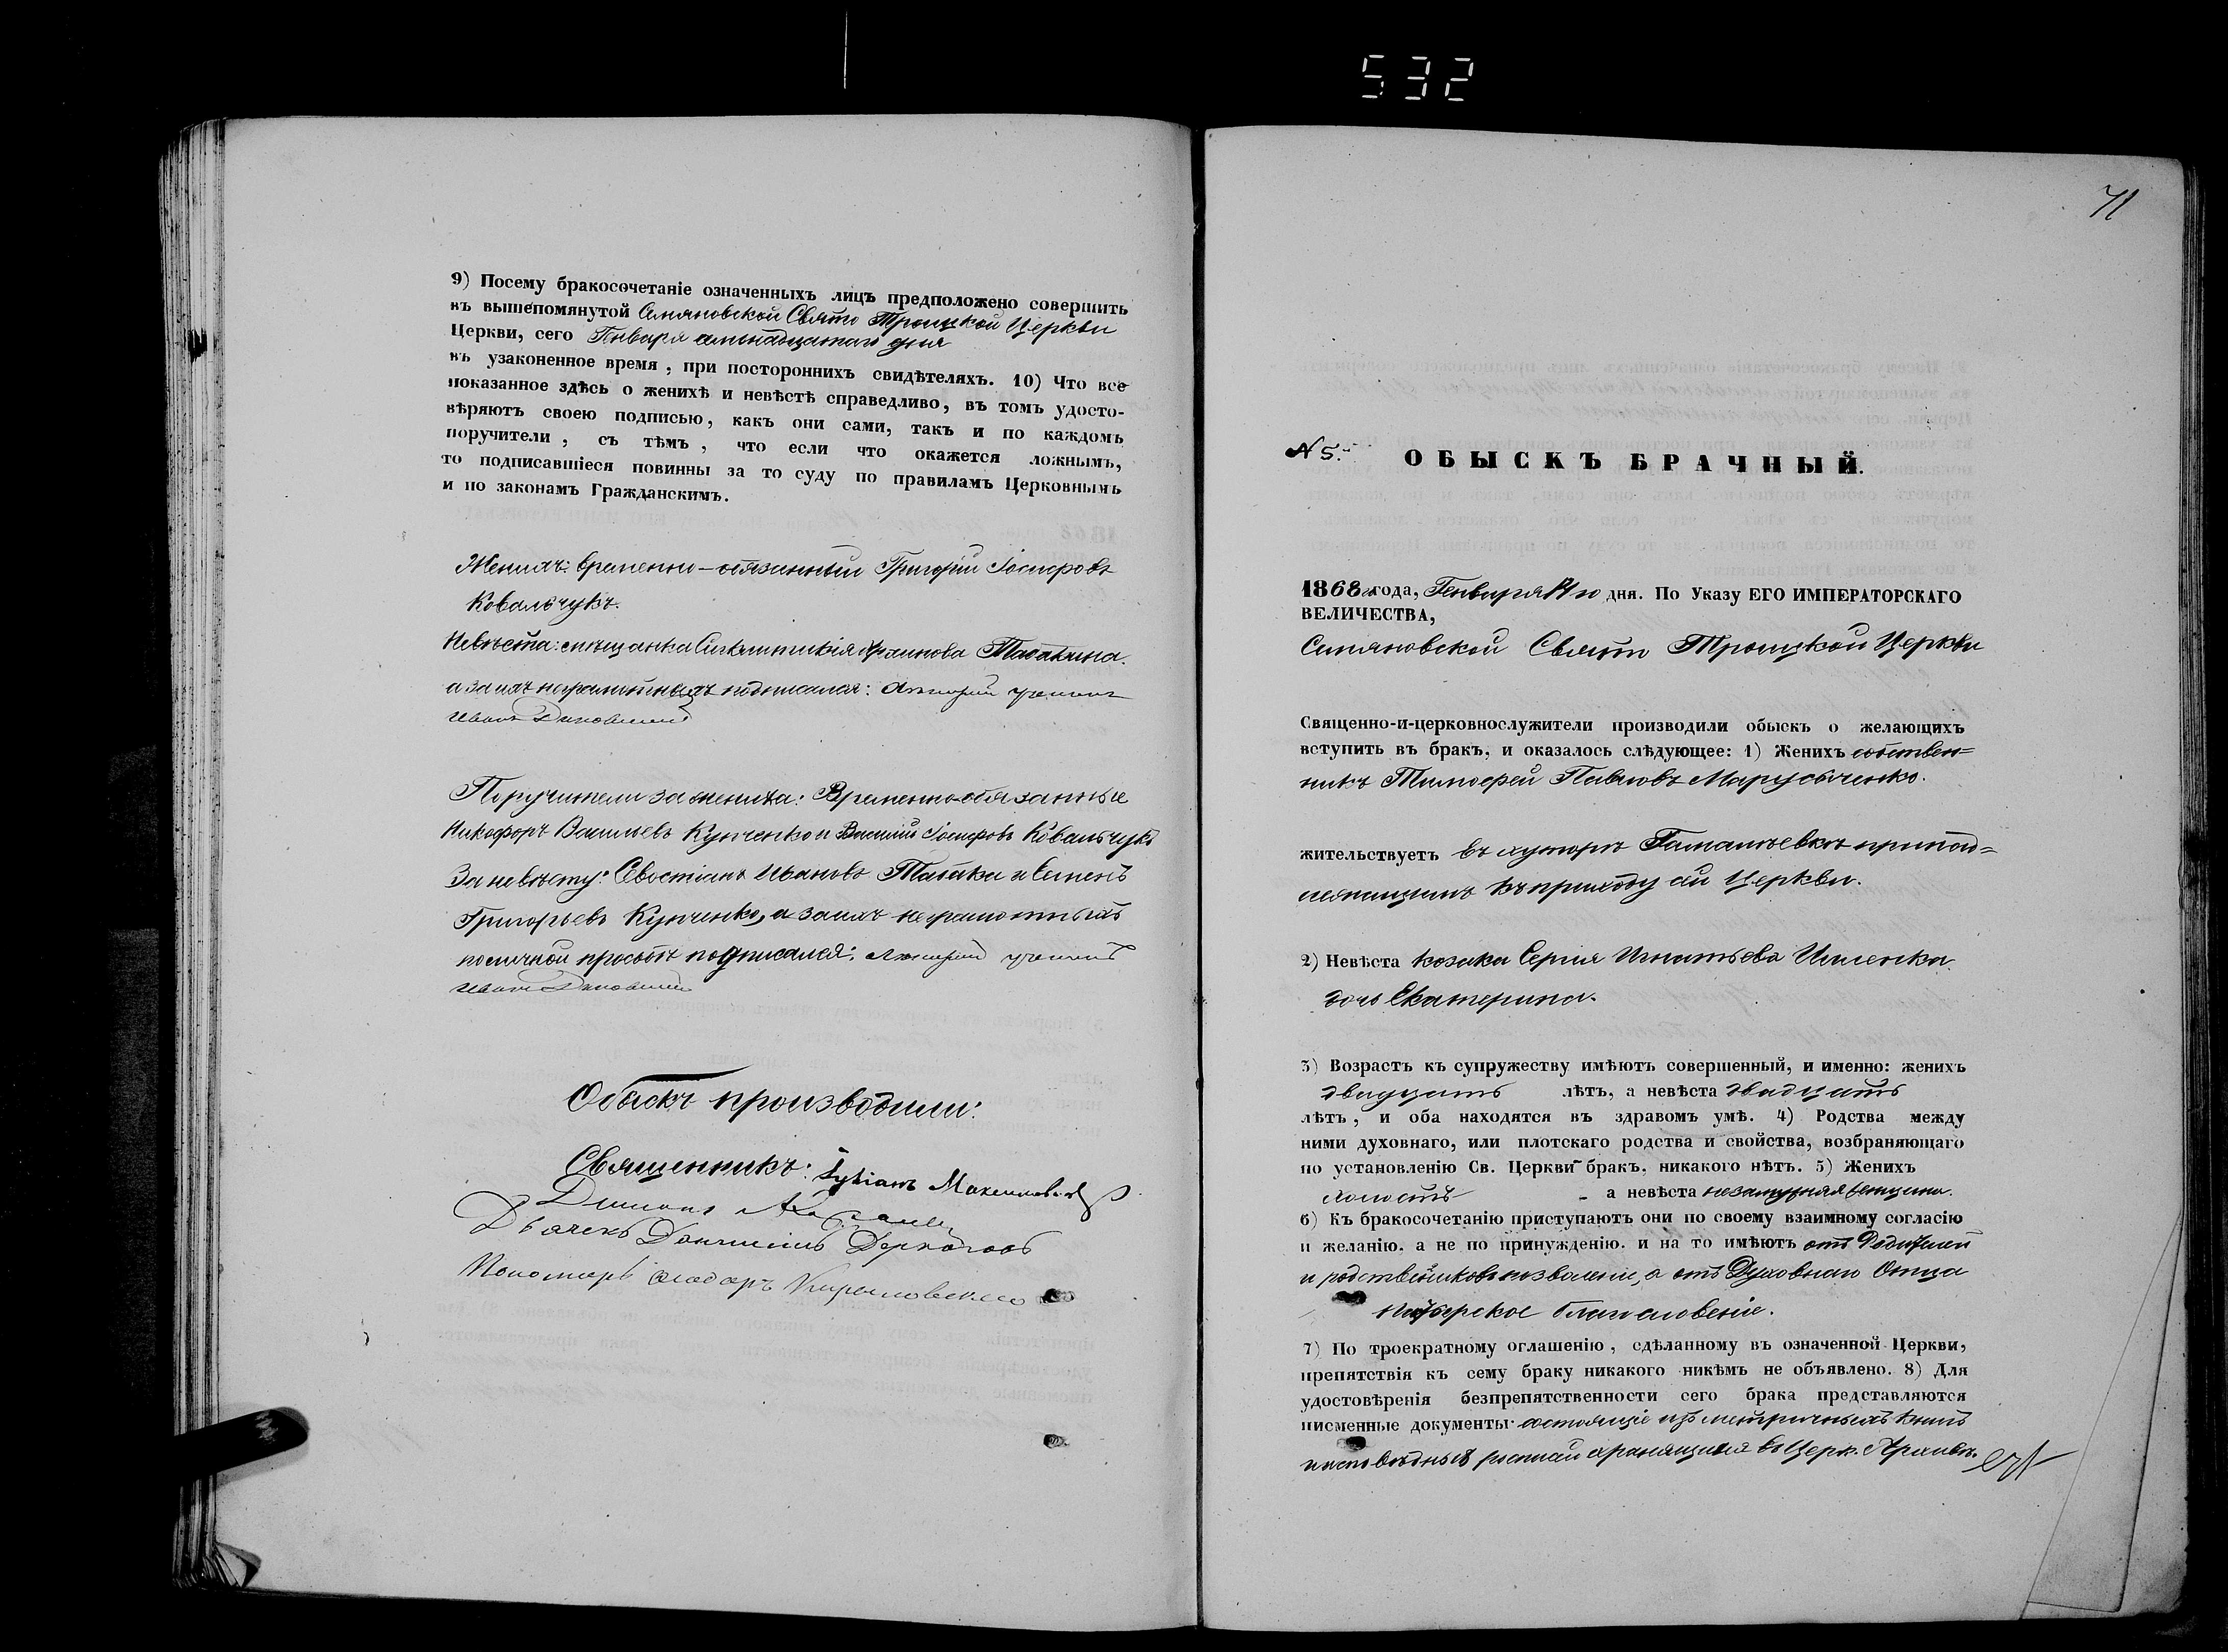 532
9) Посему бракосочетаніе означенныхъ лицъ предположено совершить
въ вышепомянутой Семяновской Свято Троицкой Церкви
Церкви, сего Генваря дня
въ узаконенное время, при постороннихъ свидѣтеляхъ. 10) Что все
показанное здѣсь о женихѣ и невѣстѣ справедливо, въ томъ удосто-
вѣряютъ своею подписью, какъ они сами, такъ и по каждомъ
поручители, съ тѣмъ, что если что окажется ложнымъ,
то подписавшіеся повинны за то суду по правиламъ Церковнымъ
и по законамъ Гражданскимъ.
Женихъ: временно-обязанный Григорій Іосифовъ
Ковальчукъ.
Невѣста: мѣщанка
а за нихъ неграмотныхъ подписался:
Иванъ
Поручители за жениха: Временно-обязанные
Никифоръ Васильевъ Купченко и Василій Іосифовъ Ковальчукъ
За невѣсту: Севостіанъ Ивановъ и Семенъ
Григорьевъ Купченко, а за нихъ неграмотныхъ
по личной просьбѣ подписался:
Иванъ
Обыскъ производили:
Священникъ: Іуліанъ Максимовичъ
Дьячекъ
Пономарь
71
N 5.
ОБЫСКЪ БРАЧНЫЙ.
1868 года, Генваря дня. По Указу ЕГО ИМПЕРАТОРСКАГО
ВЕЛИЧЕСТВА,
Семяновской Свято Троицкой Церкви
Священно-и-церковнослужители производили обыскъ о желающихъ
вступить въ бракъ, и оказалось слѣдующее: 1) Женихъ собствен=
никъ Тимофей Павловъ Марусиченко.
жительствуетъ въ хуторѣ принад=
лежащимъ къ приходу сей Церкви.
2) Невѣста козака Сергія Игнатьева
дочь Екатерина.
3) Возрастъ къ супружеству имѣютъ совершенный, и именно: женихъ
двадцать лѣтъ, а невѣста двадцать
лѣтъ, и оба находятся въ здравомъ умѣ. 4) Родства между
ними духовнаго, или плотскаго родства и свойства, возбраняющаго
по установленію Св. Церкви бракъ, никакого нѣтъ. 5) Женихъ
холостъ а невѣста
6) Къ бракосочетанію приступаютъ они по своему взаимному согласію
и желанію, а не по принужденію, и на то имѣютъ отъ Родителей
и родственниковъ позволеніе, а отъ Духовнаго Отца
пастырское благословеніе.
7) По троекратному оглашенію, сдѣланному въ означенной Церкви,
препятствія къ сему браку никакого никѣмъ не объявлено. 8) Для
удостовѣренія безпрепятственности сего брака представляются
писменные документы состоящіе изъ метричныхъ книгъ
и исповѣдныя росписи хранящіяся въ Церк. Архивѣ.